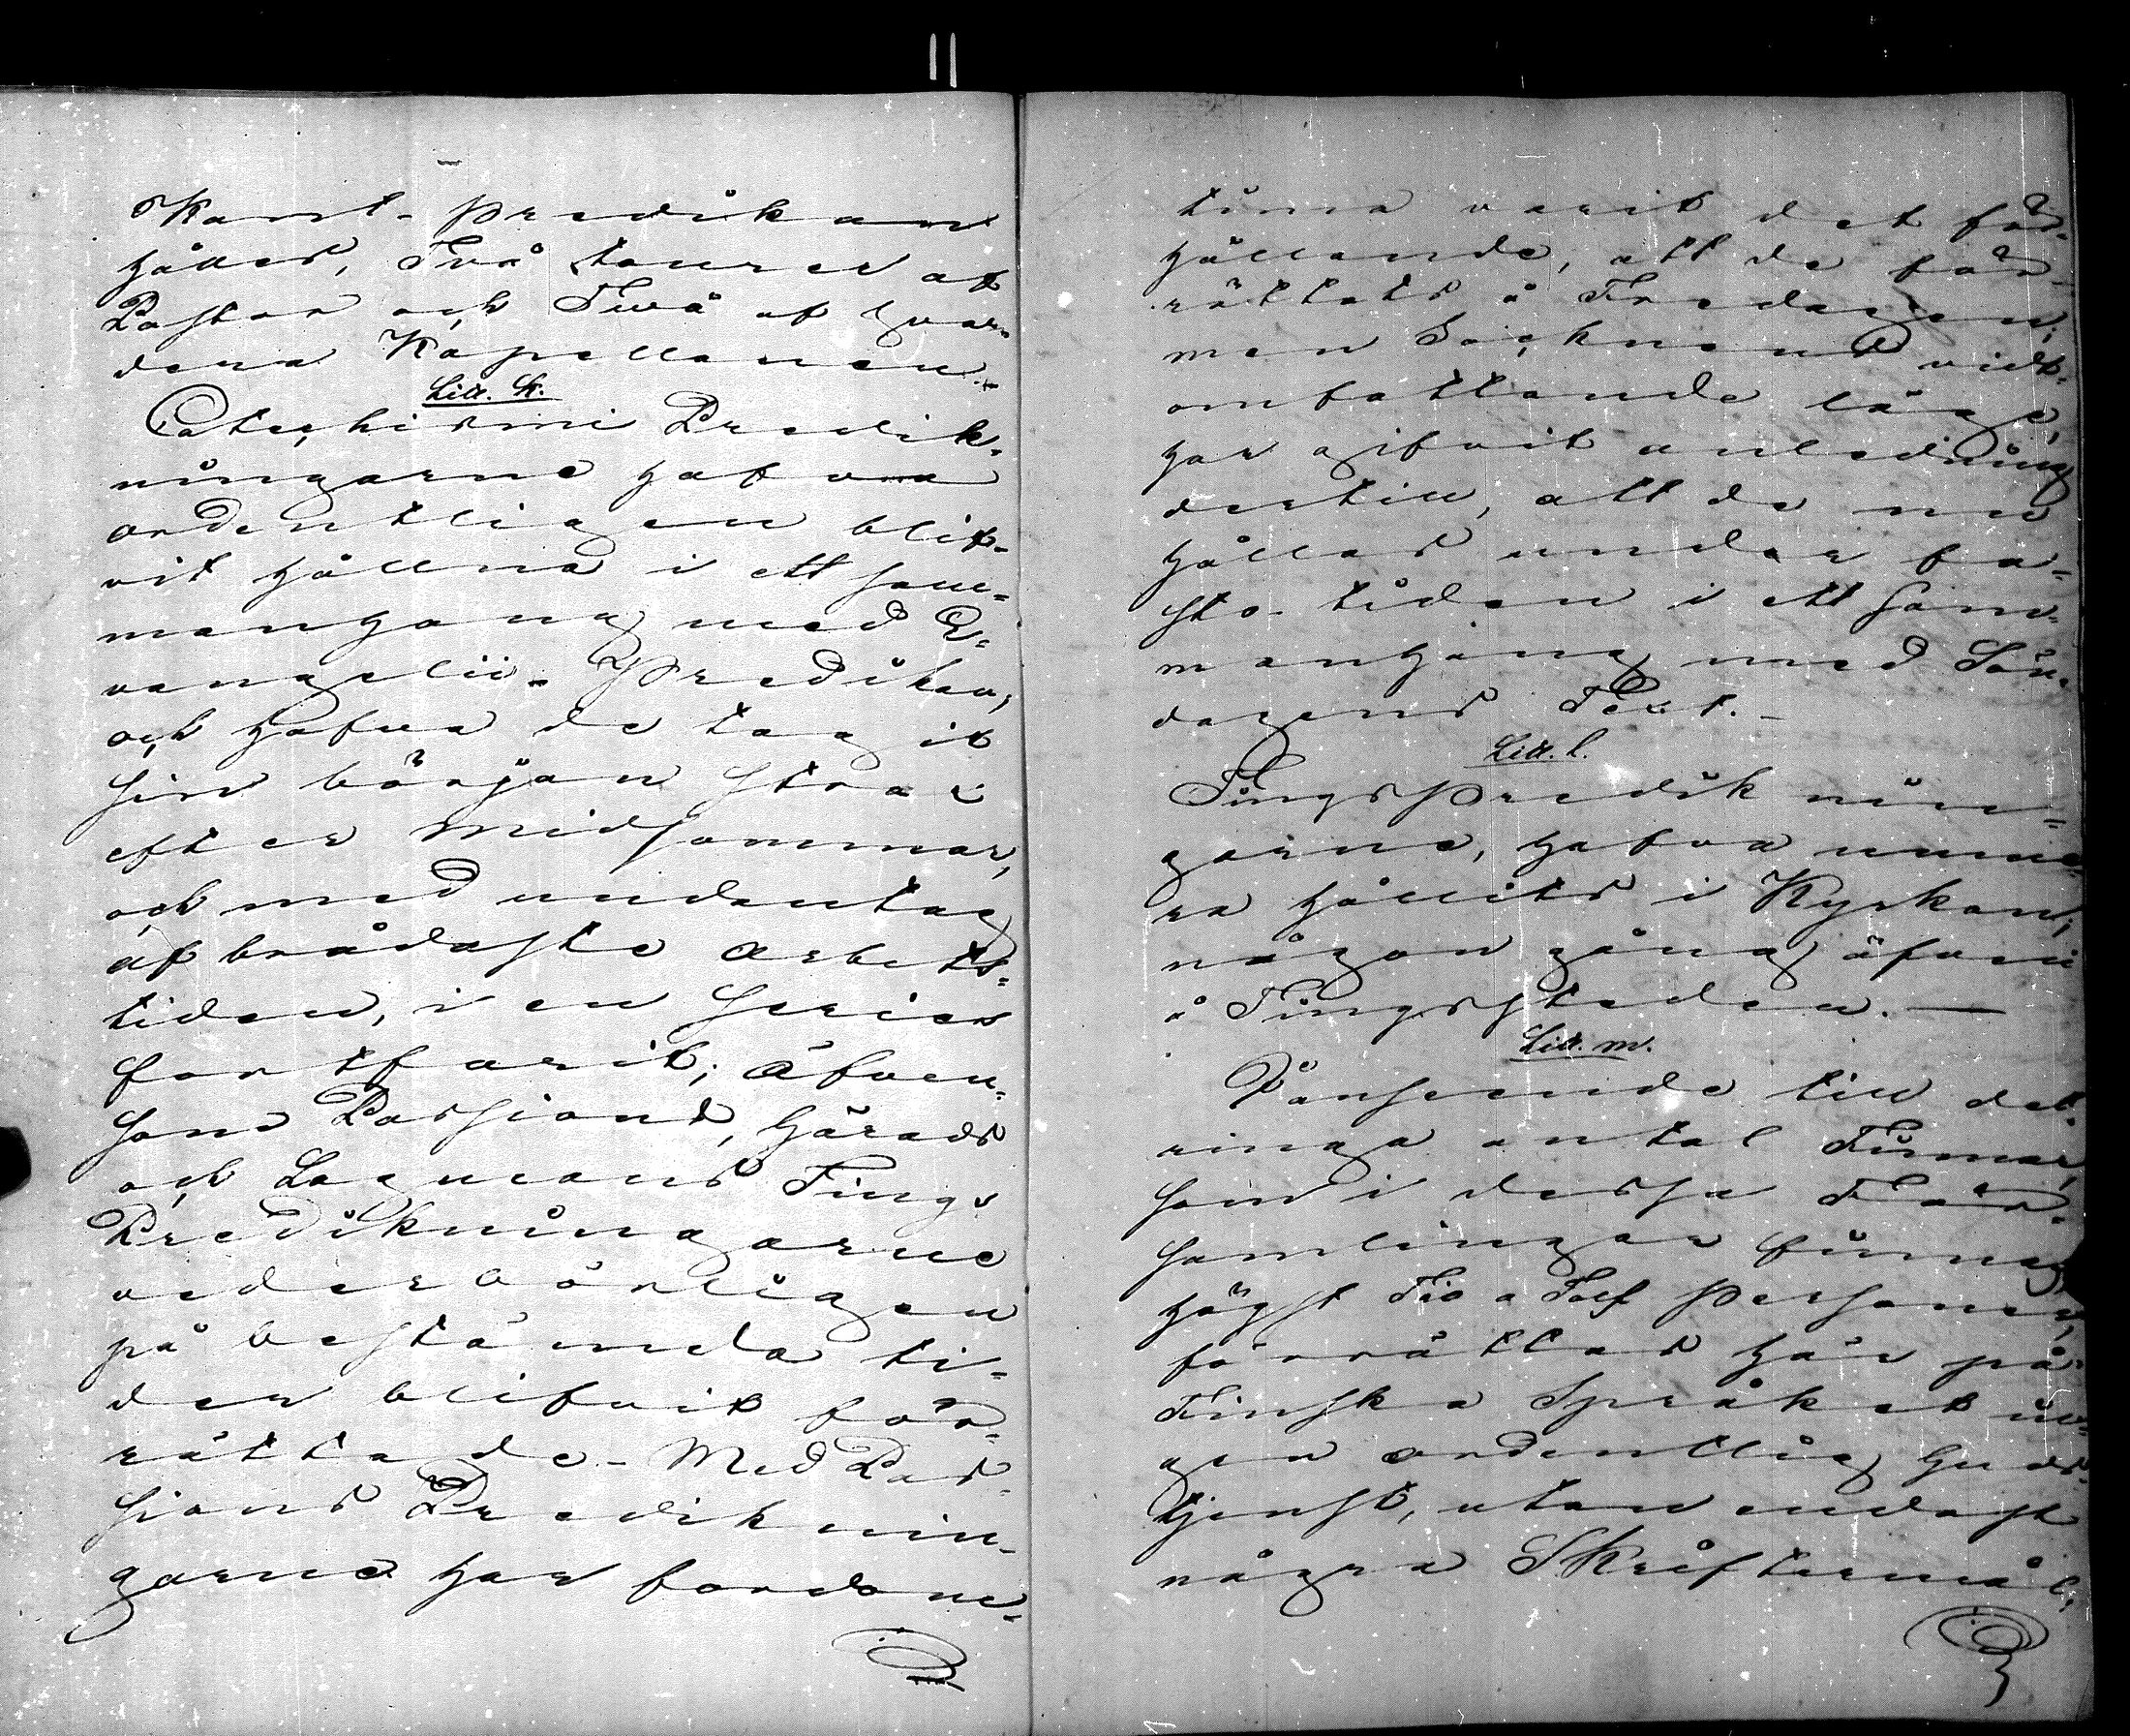 Kant- predikan
håller, Två tourer af
Pastor och Twå af hvar-
dera Kapellanen.-
Litt. k.
Catechismi Predik-
ningarne hafva
ordentligen blif-
vit hållna i ett sam-
manhang med E-
vangelii- Predikan,
och hafva de tagit
sin början strax
efter Midsommar,
och med undantag
af brådaste arbets-
tiden, i en Series
fortfarit; äfven-
som Passions, Härads
och Lagmans Tings
Predikningarne
vederbörligen
på bestämda ti-
der blifvit för-
rättade.- Med Pas-
sions Prediknin-
garne har fordom-
tima varit det för-
hållande, att de för-
rättats å Fredagen,
men Socknens vidt-
omfattande läge,
har gifvit anledning
dertill, att de nu
hållas under fa-
sto- tiden i ett sam-
manhang med Sön-
dagens Text.-
Litt. l.
Tingsprediknin-
garne, hafva nume-
ra hållits i Kyrkan,
någon gång äfven
å Tingsstaden.-
Litt. m.
I anseende till det
ringa antal Finnar,
som i dessa För-
samlingar finnas,
högst Tio a Tolf personer,
förrättas här på
Finska Språket in-
gen ordentlig Guds-
tjenst, utan endast
några Skriftermål,